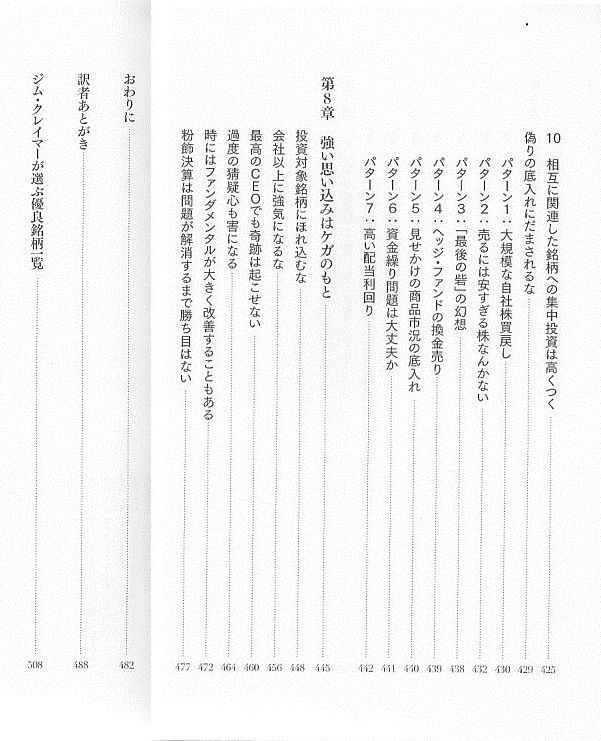 10 相互に関連した銘柄への集中投資は高くつく 425
偽りの底入れにだまされるな 429
パターン1：大規模な自社株買戻し 430
パターン2：売るには安すぎる株なんかない 432
パターン3：「最後の砦」の幻想 438
パターン4：ヘッジ・ファンドの換金売り 439
パターン5：見せかけの商品市況の底入れ 440
パターン6：資金繰り問題は大丈夫か 441
パターン7：高い配当利回り 442
第8章 強い思い込みはケガのもと 445
投資対象銘柄にほれ込むな 448
会社以上に強気になるな 456
最高のCEOでも奇跡は起こせない 460
過度の猜疑心も害になる 464
時にはファンダメンタルが大きく改善することもある 472
粉飾決算は問題が解消するまで勝ち目はない 477
おわりに 482
訳者あとがき 488
ジム・クレイマーが選ぶ優良銘柄一覧 508